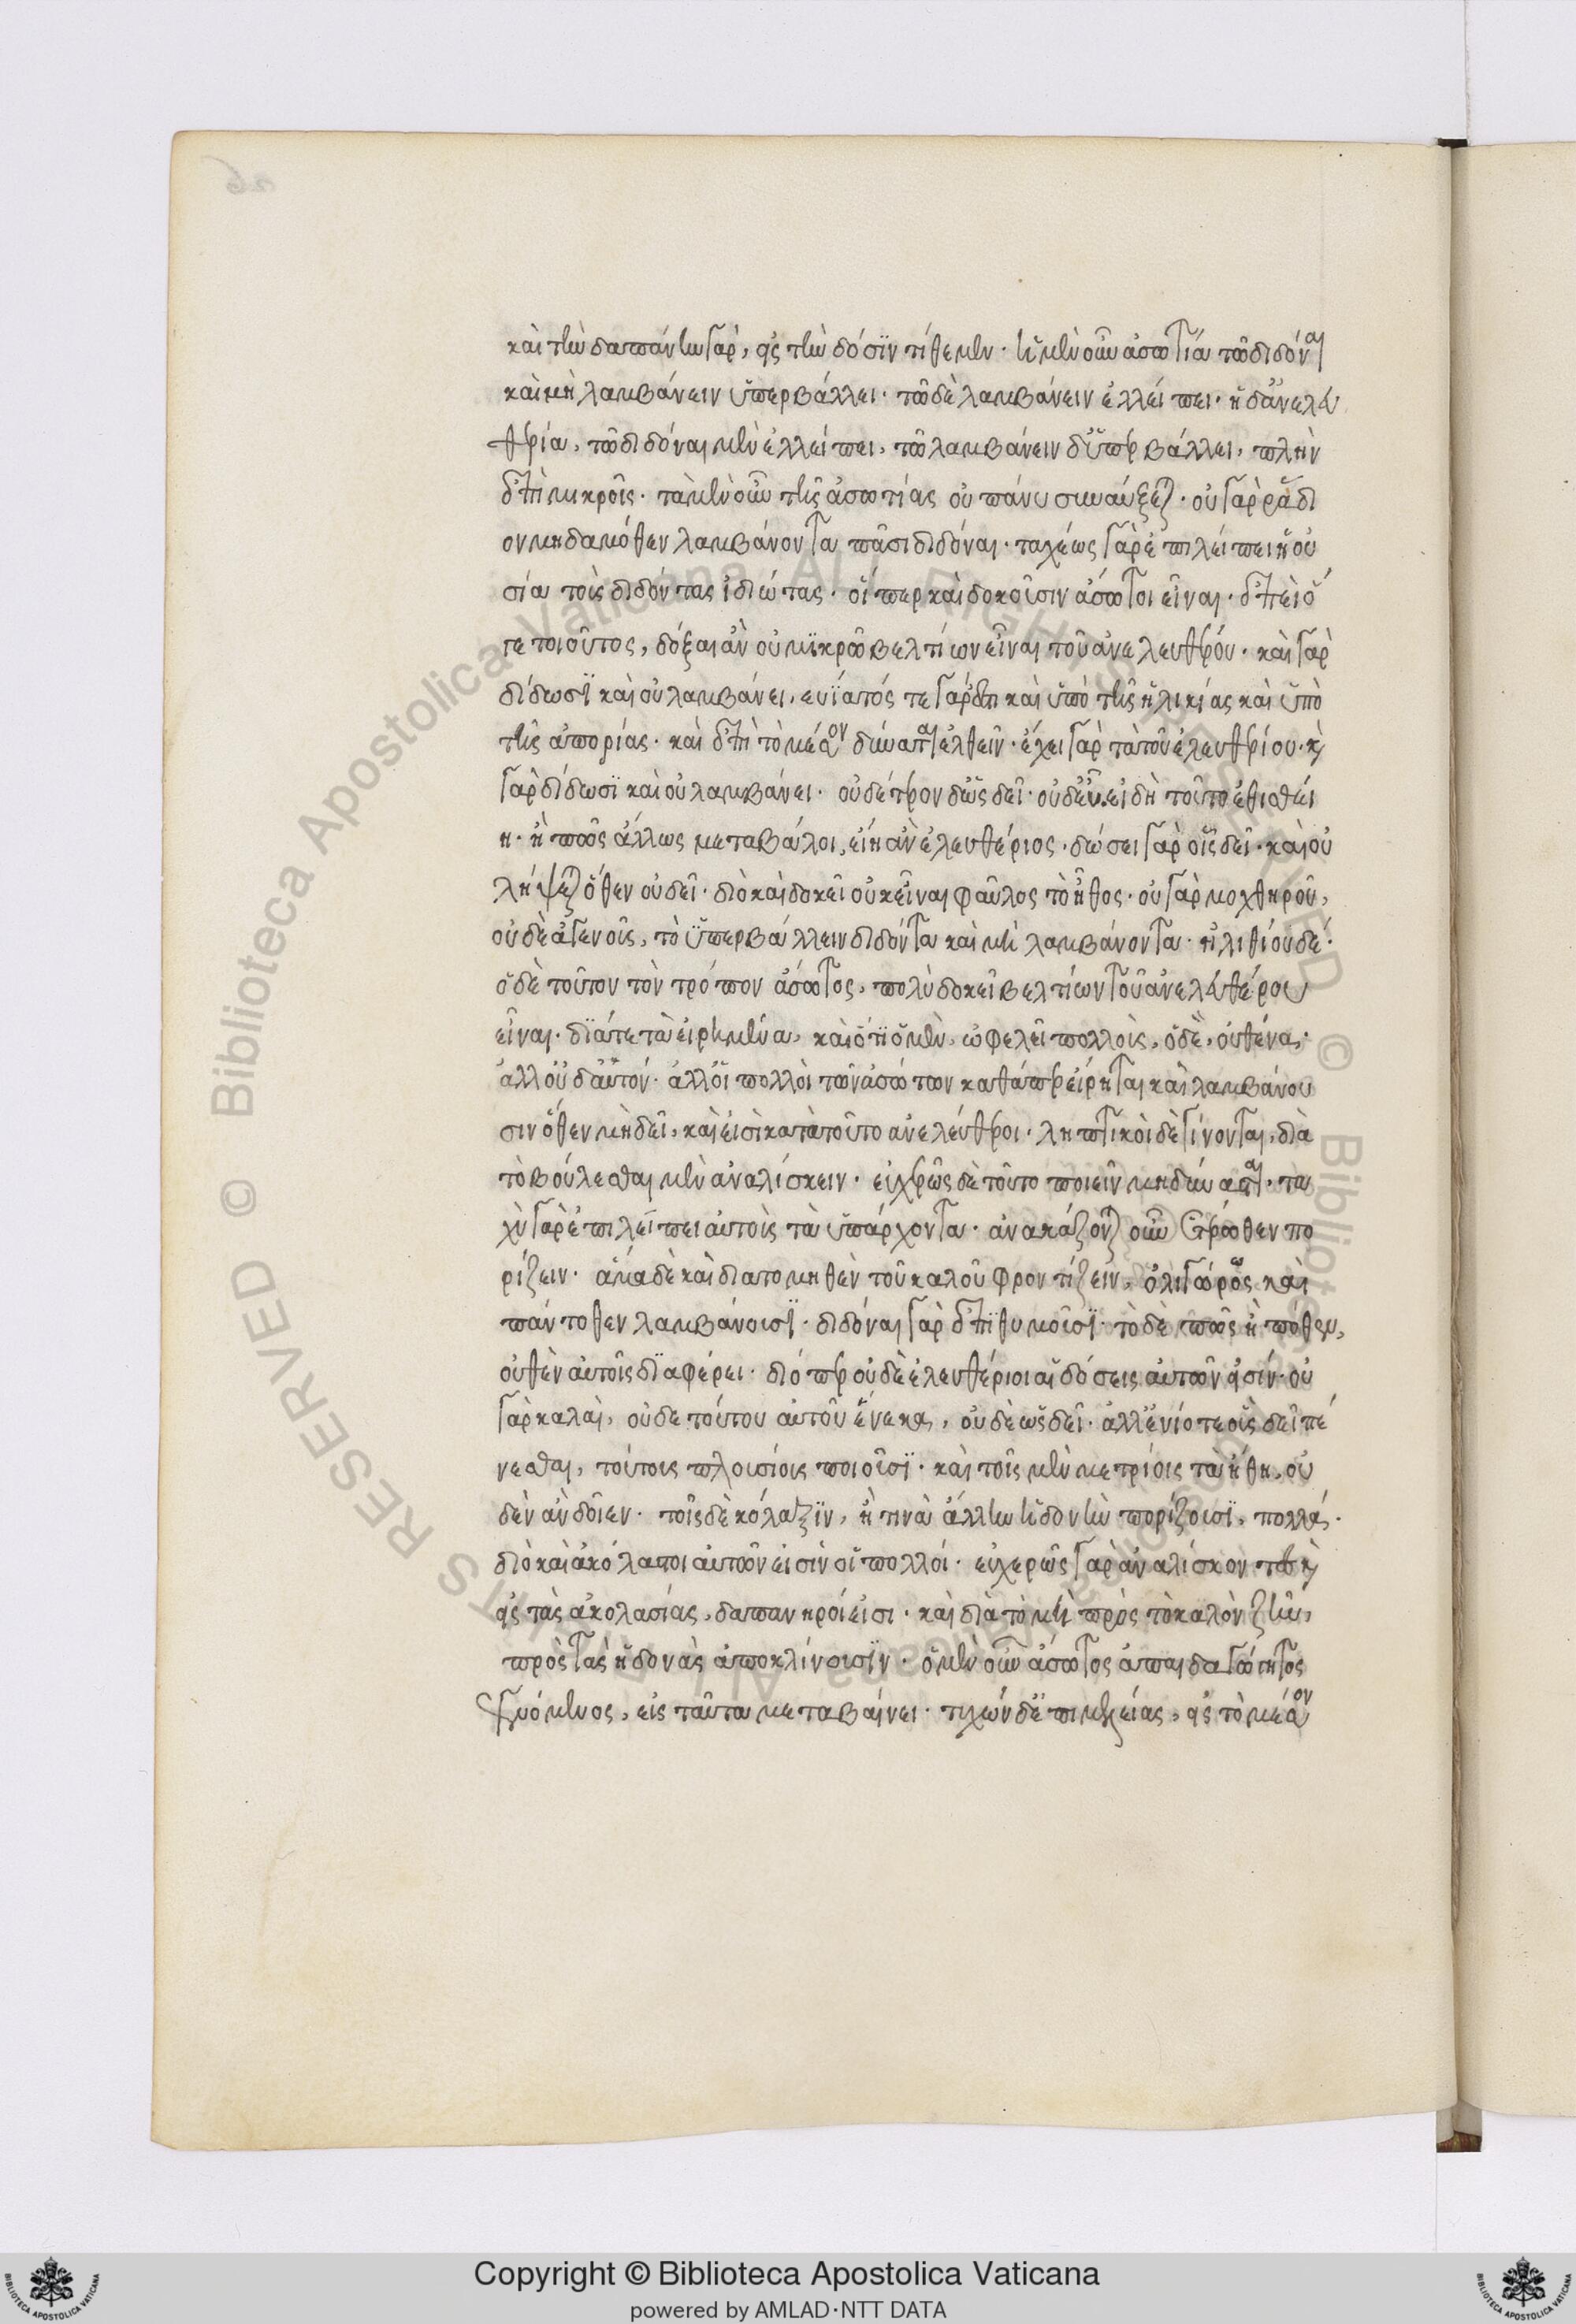 καὶ τὴν δαπάνην γὰρ, εἰς τὴν δόσιν τίθεμεν· ἡ μὲν οὖν ἀσωτία τῶ διδόναι
καὶ μὴ λαμβάνειν ὑπερβάλλει· τῶ δὲ λαμβάνειν ἐλλείπει· ἡ δ' ἀνελευ
θερία, τῶ διδόναι μὲν ἐλλείπει, τῶ λαμβάνειν δ' ὑπερβάλλει, πλὴν
ἐπὶ μικροῖς· τὰ μὲν οὖν τῆς ἀσωτίας οὐ πάνυ συναύξεται· οὐ γὰρ ῥάδι
ον μηδαμόθεν λαμβάνοντα πᾶσι διδόναι· ταχέως γὰρ ἐπιλείπει ἡ οὐ
σία τοὺς διδόντας ἰδιώτας· οἵπερ καὶ δοκοῦσιν ἄσωτοι εἶναι· ἐπεὶ ὅ
γε τοιοῦτος, δόξαι ἂν οὐ μικρῶ βελτίων εἶναι τοῦ ἀνελευθέρου· καὶ γὰρ
δίδωσι καὶ οὐ λαμβάνει, εὐίατός τε γάρ ἐστι καὶ ὑπὸ τῆς ἡλικίας καὶ ὑπὸ
τῆς ἀπορίας· καὶ ἐπὶ τὸ μέσον δύναται ἐλθεῖν· ἔχει γὰρ τὰ τοῦ ἐλευθερίου· καὶ
γὰρ δίδωσι καὶ οὐ λαμβάνει· οὐδέτερον δ' ὡς δεῖ· οὐδ' εὖ. εἰ δὴ τοῦτο ἐθισθεί
η· ἢ πως ἄλλως μεταβάλοι, εἴη ἂν ἐλευθέριος· δώσει γὰρ οἷς δεῖ· καὶ οὐ
λήψεται ὅθεν οὐ δεῖ· διὸ καὶ δοκεῖ οὐκ εἶναι φαῦλος τὸ ἦθος· οὐ γὰρ μοχθηροῦ,
οὐδὲ ἀγενοῦς, τὸ ὑπερβάλλειν διδόντα καὶ μὴ λαμβάνοντα· ἠλιθίου δέ·
ὁ δὲ τοῦτον τὸν τρόπον ἄσωτος, πολὺ δοκεῖ βελτίων τοῦ ἀνελευθέρου
εἶναι· διά τε τὰ εἰρημένα, καὶ ὅτι ὁ μὲν, ὠφελεῖ πολλοὺς, ὁ δὲ, οὐθένα,·
ἀλλ' οὐδ' αὑτόν· ἀλλ' οἱ πολλοὶ τῶν ἀσώτων καθάπερ εἴρηται καὶ λαμβάνου
σιν ὅθεν μὴ δεῖ, καὶ εἰσὶ κατὰ τοῦτο ἀνελεύθεροι· ληπτικοὶ δὲ γίνονται, διὰ
τὸ βούλεσθαι μὲν ἀναλίσκειν· εὐχερῶς δὲ τοῦτο ποιεῖν μὴ δύνασθαι· τα
χὺ γὰρ ἐπιλείπει αὐτοὺς τὰ ὑπάρχοντα· ἀναγκάζονται οὖν ἑτέρωθεν πο
ρίζειν· ἅμα δὲ καὶ διὰ τὸ μηθὲν τοῦ καλοῦ φροντίζειν, ὀλιγώρως καὶ
πάντοθεν λαμβάνουσι· διδόναι γὰρ ἐπιθυμοῦσι· τὸ δὲ πῶς ἢ πόθεν,
οὐθὲν αὐτοῖς διαφέρει· διόπερ οὐδὲ ἐλευθέριοι αἱ δόσεις αὐτῶν εἰσίν· οὐ
γὰρ καλαὶ, οὐδὲ τούτου αὐτοῦ ἕνεκα, οὐδὲ ὡς δεῖ· ἀλλ' ἐνίοτε οὓς δεῖ πέ
νεσθαι, τούτους πλουσίους ποιοῦσι· καὶ τοῖς μὲν μετρίοις τὰ ἤθη, οὐ
δὲν ἂν δοῖεν· τοῖς δὲ κόλαξιν, ἤ τινα ἄλλην ἡδονὴν πορίζουσι, πολλά·
διὸ καὶ ἀκόλαστοι αὐτῶν εἰσὶν οἱ πολλοί· εὐχερῶς γὰρ ἀναλίσκοντες καὶ
εἰς τὰς ἀκολασίας, δαπανηροί εἰσι· καὶ διὰ τὸ μὴ πρὸς τὸ καλὸν ζῆν,
πρὸς τὰς ἡδονὰς ἀποκλίνουσιν· ὁ μὲν οὖν ἄσωτος ἀπαιδαγώγητος
γενόμενος, εἰς ταῦτα μεταβαίνει· τυχὼν δ' ἐπιμελείας, εἰς τὸ μέσον